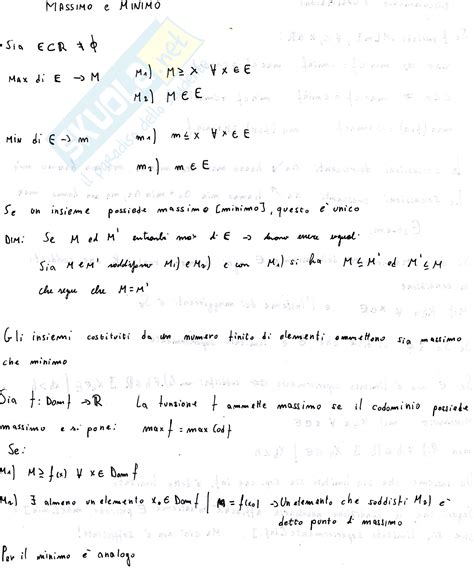 MASSIMO e MINIMO
• Sia E⊂R ≠ ∅
MAX di E → M M1) M ≥ x ∀ x ∈ E
M2) M ∈ E
MIN di E → m m1) m ≤ x ∀ x ∈ E
m2) m ∈ E
SKUOLA.net
il paradiso dello
Se un insieme possiede massimo [minimo], questo è unico
DIM: Se M ed M' entrambi max di E → devono essere uguali.
Sia M e M' soddisfano M1) e M2) e con M1) si ha M ≤ M' ed M' ≤ M
che segue che M = M'
Gli insiemi costituiti da un numero finito di elementi ammettono sia massimo
che minimo
Sia f: Dom f → R La funzione f ammette massimo se il codominio possiede
massimo e si pone: max f = max Cod f
Se:
M1) M ≥ f(x) ∀ x ∈ Dom f
M2) ∃ almeno un elemento x0 ∈ Dom f | M = f(x0) → Un elemento che soddisfi M2) è
detto punto di massimo
Per il minimo è analogo